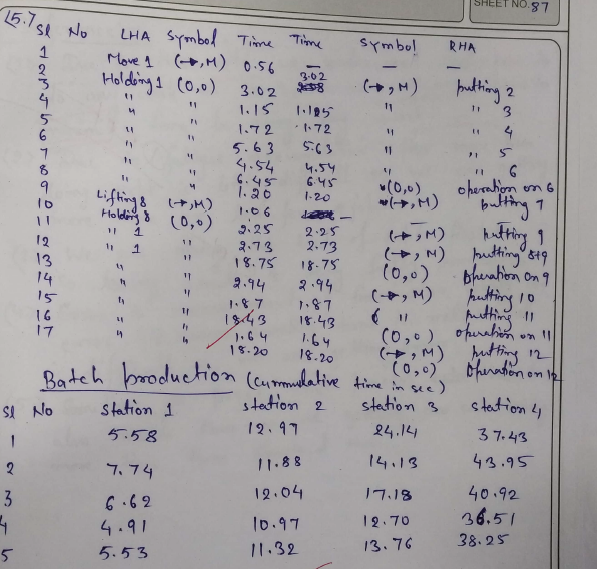 SHEET NO. 87
15.7
Sl No LHA Symbol Time Time Symbol RHA
1 Move 1 (→, M) 0.56 — — —
2 Holding 1 (O, O) 3.02 3.02 (→, M) putting 2
3 " " 1.15 1.15 " " 3
4 " " 1.72 1.72 " " 4
5 " " 5.63 5.63 " " 5
6 " " 4.54 4.54 " " 6
7 " " 6.45 6.45 (O, O) operation on 6
8 " " 1.20 1.20 (→, M) putting 7
9 Lifting 8 (→, M) 1.06 — —
10 Holding 8 (O, O) 2.25 2.25 (→, M) putting 9
11 " 1 " 2.73 2.73 (→, M) putting 8+9
12 " 1 " 18.75 18.75 (O, O) Operation on 9
13 " " 2.94 2.94 (→, M) putting 10
14 " " 1.87 1.87 " putting 11
15 " " 18.43 18.43 (O, O) operation on 11
16 " " 1.64 1.64 (→, M) putting 12
17 " " 18.20 18.20 (O, O) Operation on 12
Batch production (Cummulative time in sec)
Sl No Station 1 station 2 station 3 station 4
1 5.58 12.97 24.14 37.43
2 7.74 11.88 14.13 43.95
3 6.62 12.04 17.18 40.92
4 4.91 10.97 12.70 36.51
5 5.53 11.32 13.76 38.25